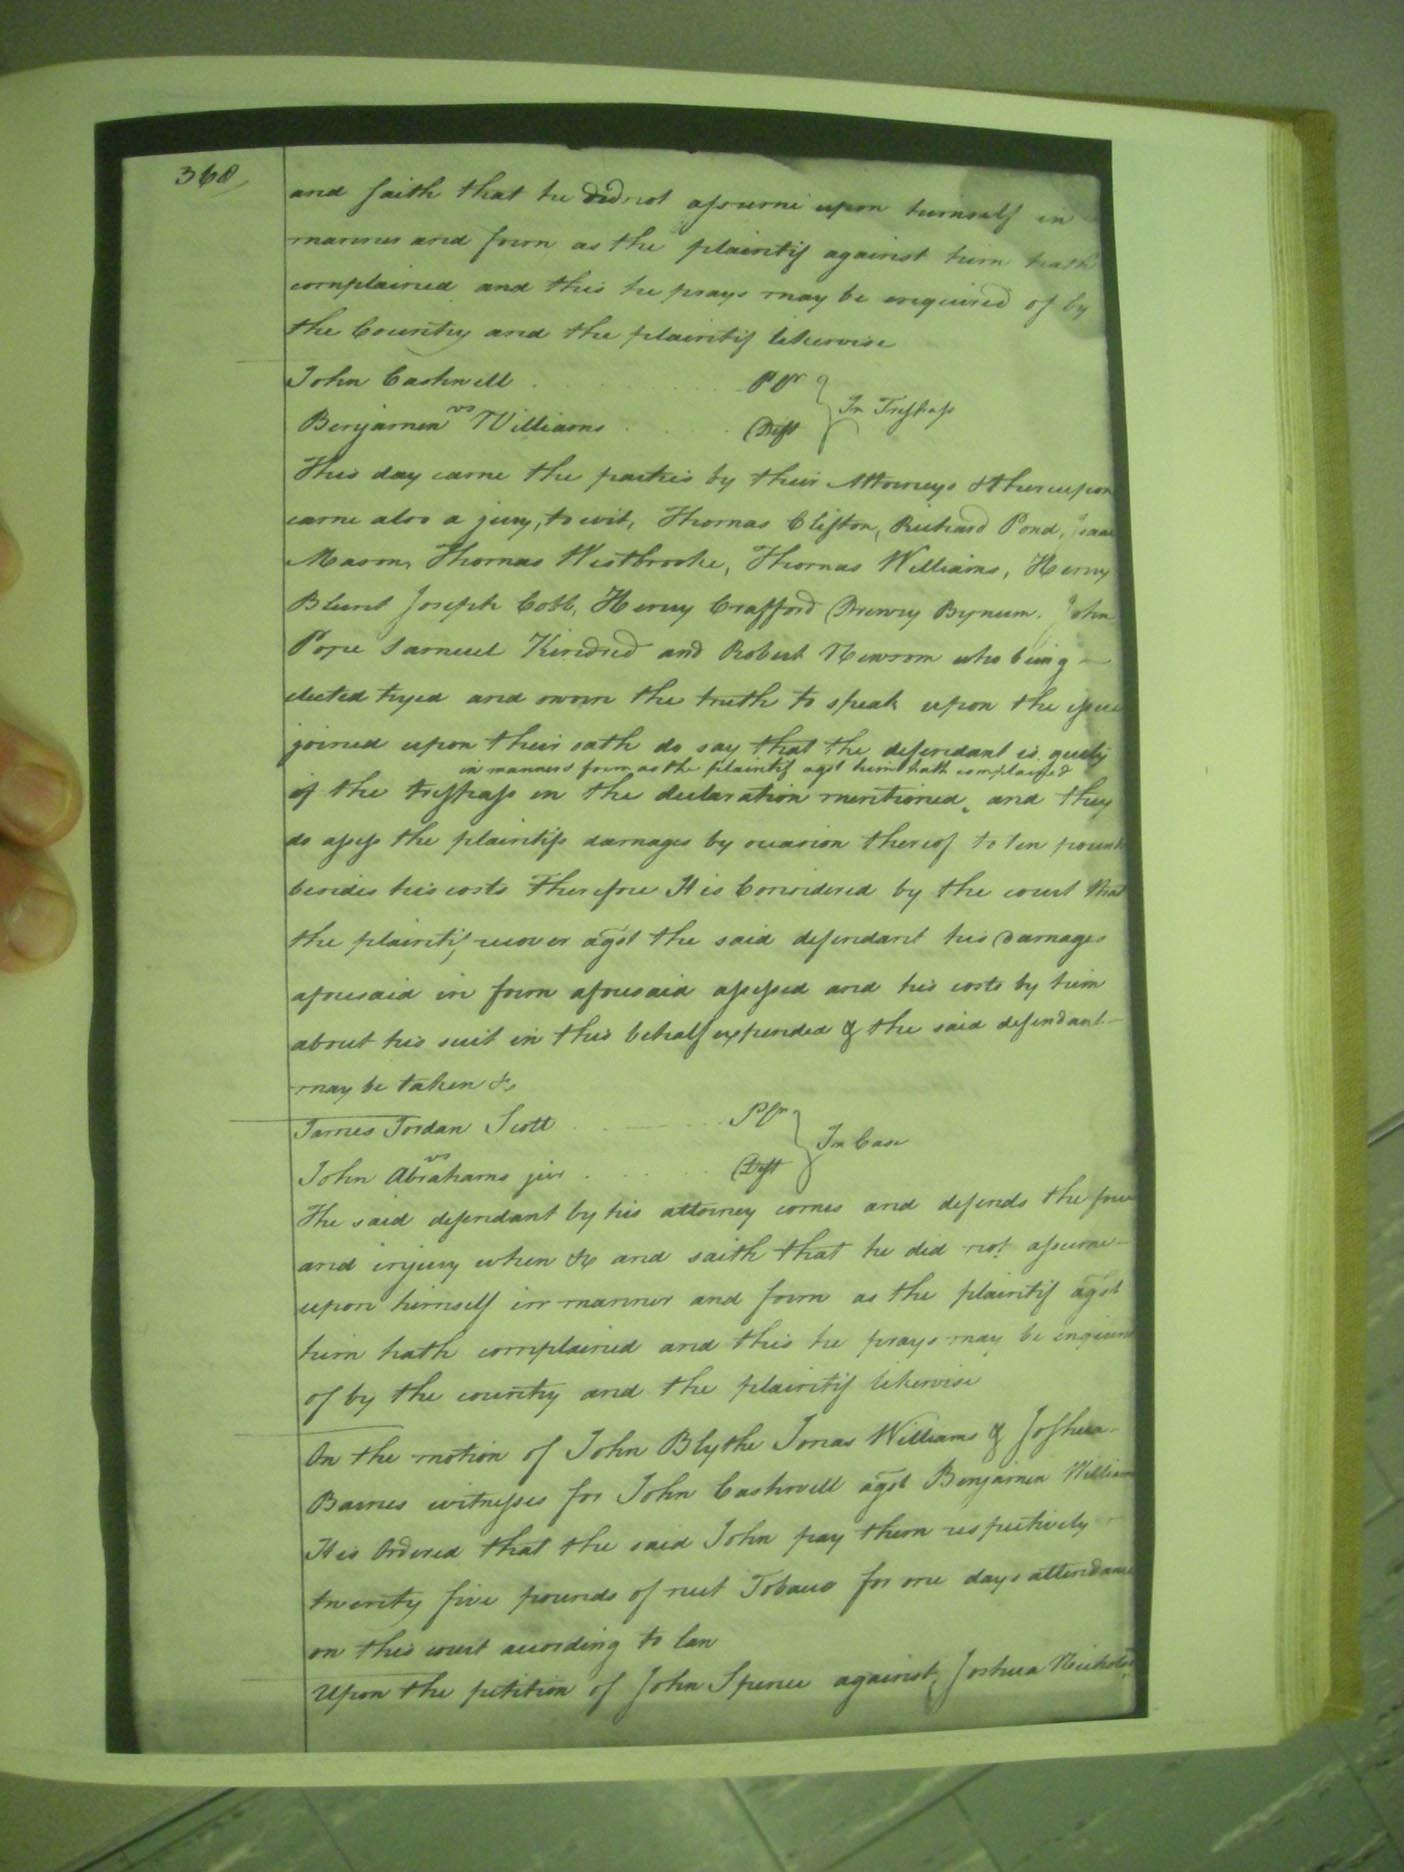 368
and saith that he did not assume upon himself in
manner and form as the plaintif against him hath
complained and this he prays may be enquired of by
the Country and the plaintif likewise
John Cashwell . . . . . . Plr } In Trespass
vs
Benjamin Williams . . . . . Deft
This day came the parties by their Attorneys & thereupon
came also a jury, to wit, Thomas Clifton, Richard Pond, Isaac
Mason, Thomas Westbrooke, Thomas Williams, Henry
Blunt Joseph Cobb, Henry Crafford Drewry Bynum. John
Pope Samuel Kindred and Robert Newsom who being
elected tryed and sworn the truth to speak upon the issue
joined upon their oath do say that the defendant is guily
in manner & form as the plaintif agst him hath complained
of the trespass in the declaration mentioned ‸ and they
do assess the plaintifs damages by occasion thereof to ten pounds
besides his costs Therefore It is Considered by the court that
the plaintif recover agst the said defendant his Damages
aforesaid in form aforesaid assessed and his costs by him
about his suit in this behalf expended & the said defendant
may be taken &c
James Jordan Scott . . . . . Plr } In Case
vs
John Abrahams jur . . . . . Deft
The said defendant by his attorney comes and defends the force
and injury when &c and saith that he did not assume
upon himself in manner and form as the plaintif agst
him hath complained and this he prays may be enquired
of by the country and the plaintif likewise
On the motion of John Blythe Jonas Williams & Joshua
Barnes witnesses for John Cashwell agst Benjamin Williams
It is Ordered that the said John pay them respectively
twenty five pounds of neet Tobacco for one days attendance
on this court according to law
Upon the petition of John Spence against Joshua